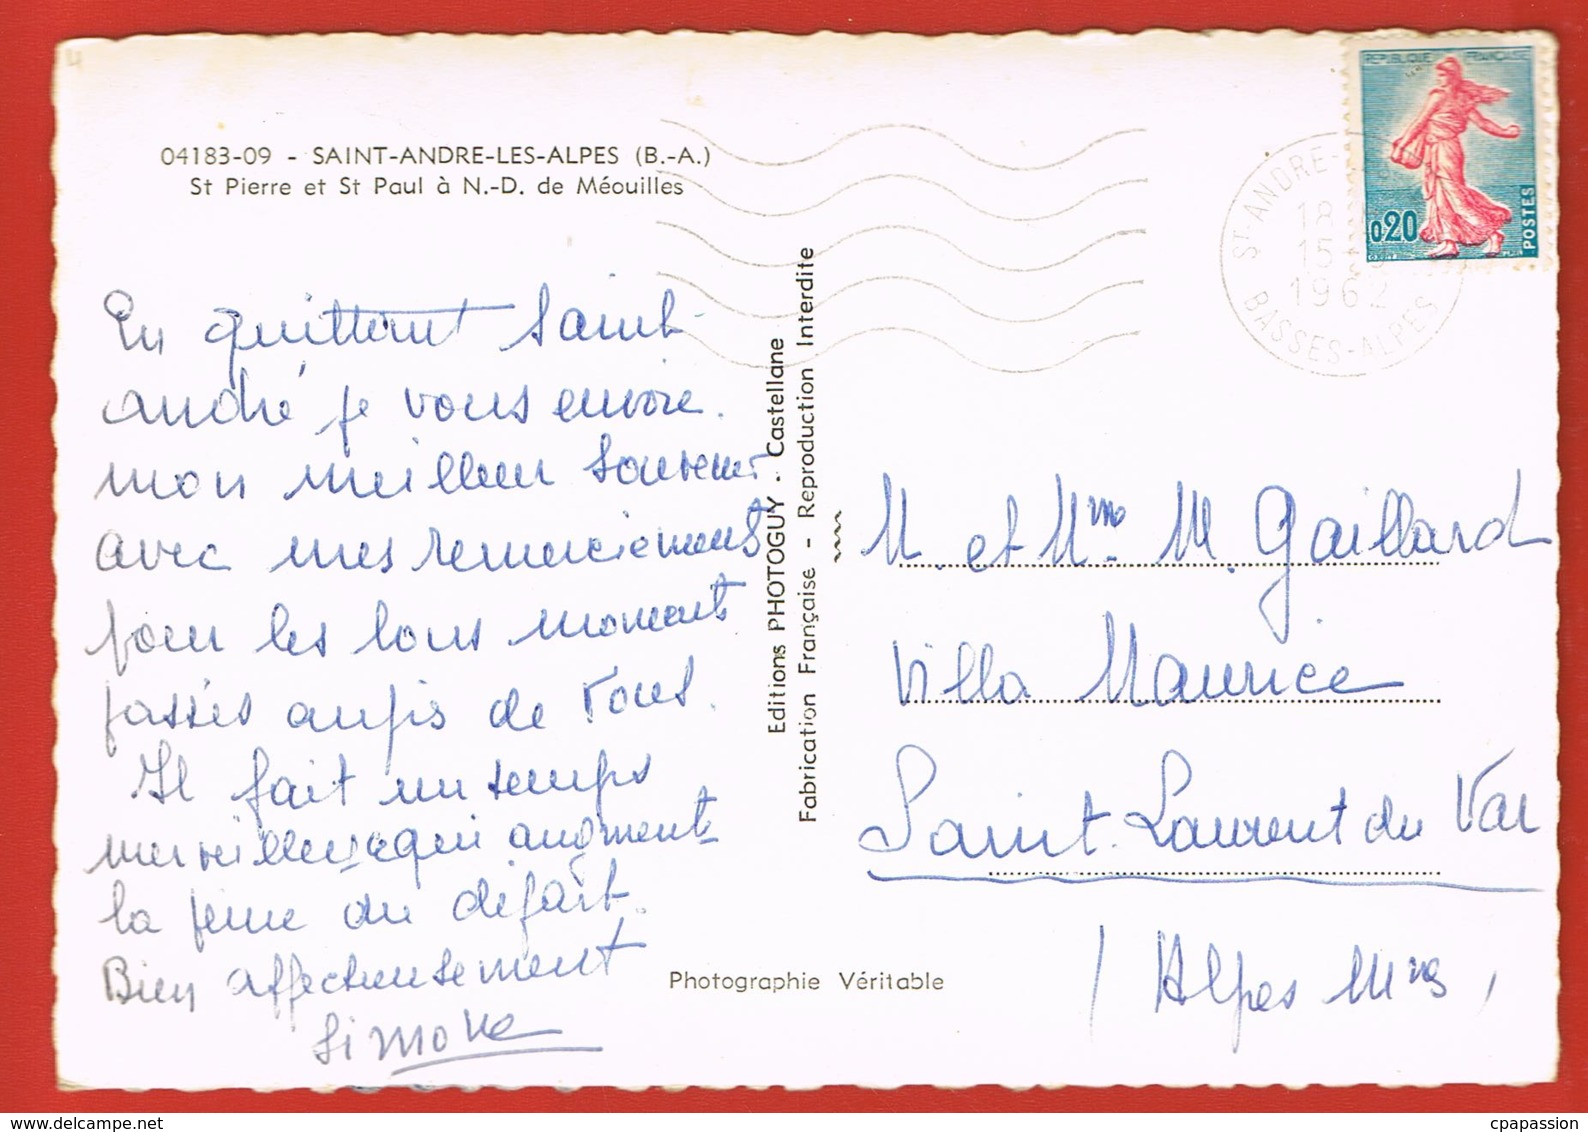 04183-09 - SAINT-ANDRE-LES-ALPES (B.-A.)
St Pierre et St Paul à N.-D. de Méouilles
En quittant Saint-
André je vous envoie
mon meilleur souvenir
avec mes remerciements
pour les bons moments
passés auprès de vous.
Il fait un temps
merveilleux qui augmente
la peine du départ.
Bien affectueusement
Simone
Editions PHOTOGUY - Castellane
Fabrication Française - Reproduction Interdite
Photographie Véritable
REPUBLIQUE FRANÇAISE
0,20
POSTES
ST-ANDRE-
18
15
1962
BASSES-ALPES
M. et Mme M. Gaillard
Villa Maurice
Saint-Laurent du Var
(Alpes Mmes)
cpapassion